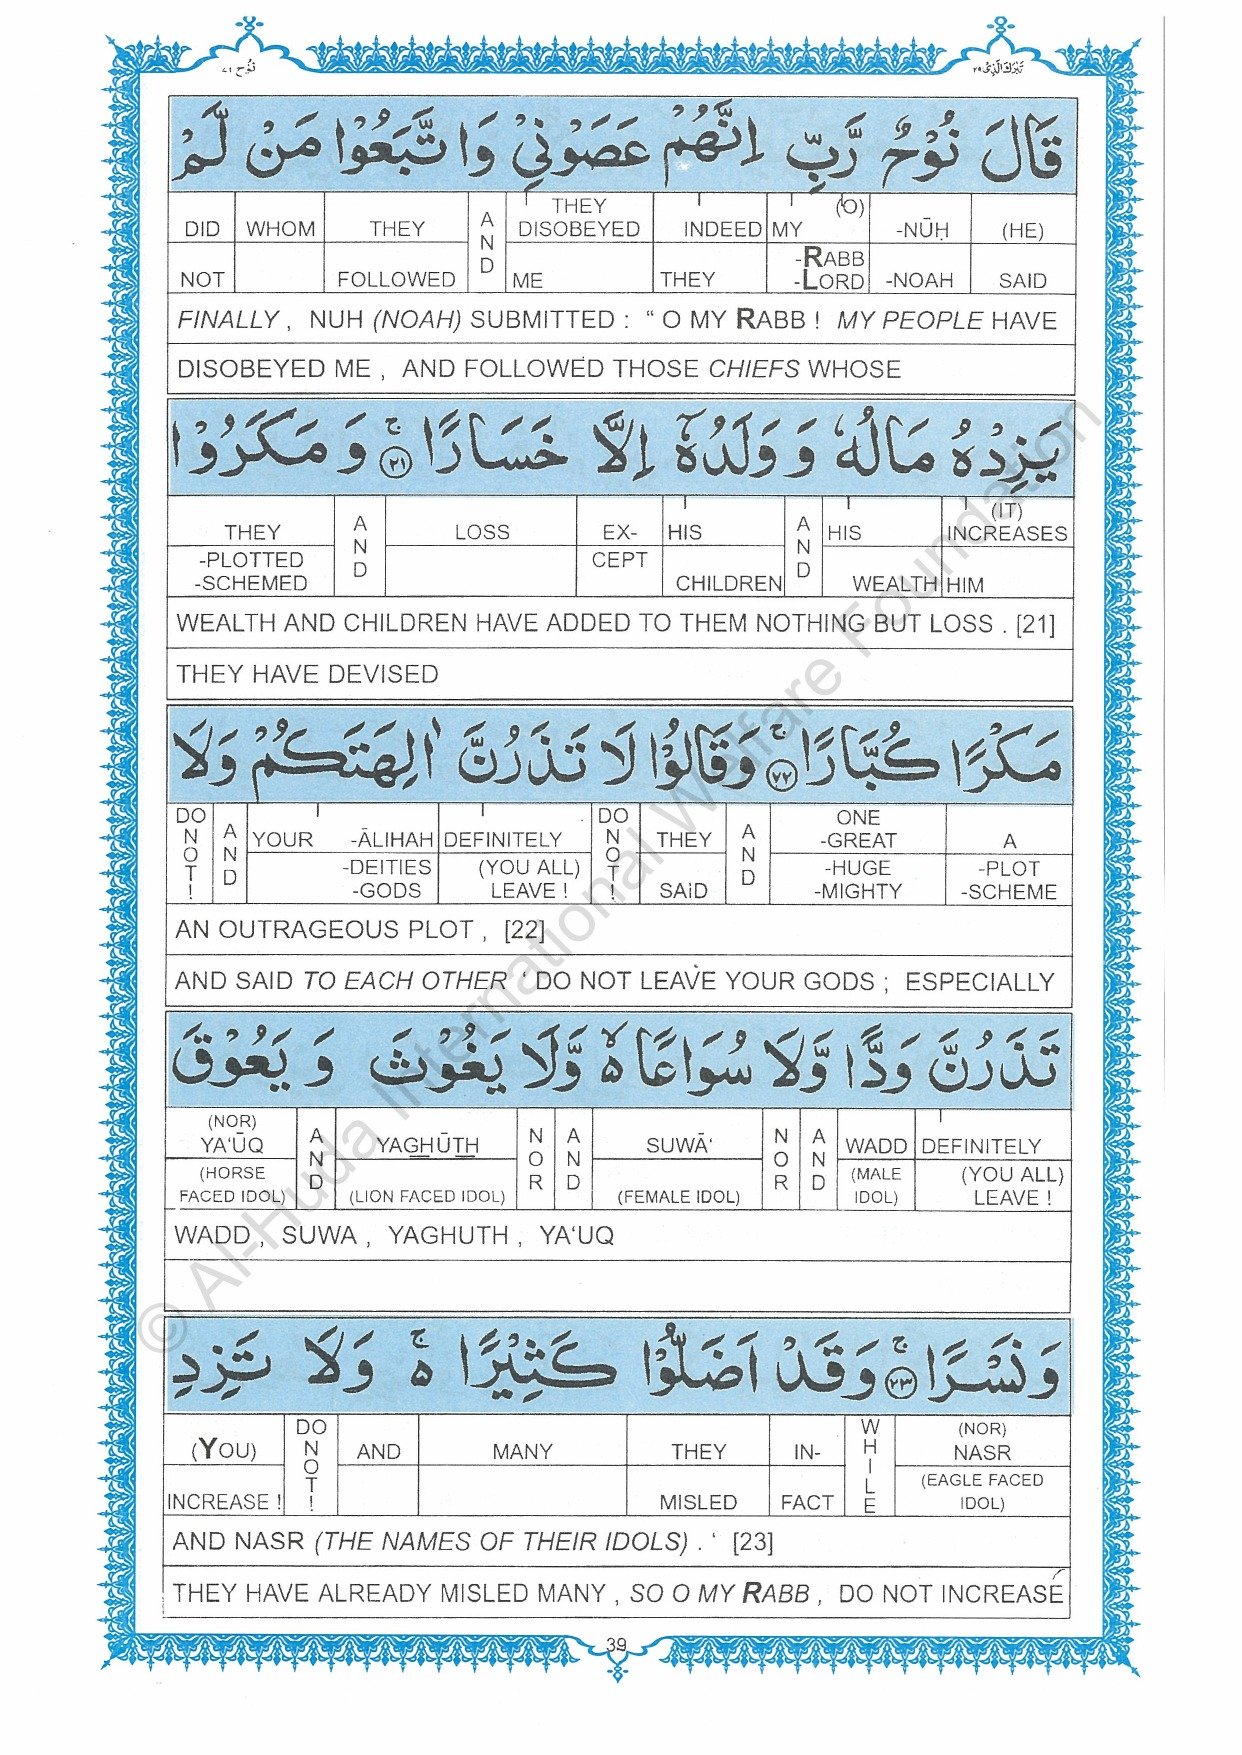 نُوْح ٧١
تَبٰرَكَ الَّذِیْ ٢٩
قَالَ نُوْحٌ رَّبِّ اِنَّهُمْ عَصَوْنِیْ وَ اتَّبَعُوْا مَنْ لَّمْ
DID WHOM THEY AND THEY DISOBEYED INDEED MY (O) -NŪḤ (HE)
NOT FOLLOWED ME THEY -RABB -LORD -NOAH SAID
FINALLY , NUH (NOAH) SUBMITTED : “ O MY RABB ! MY PEOPLE HAVE
DISOBEYED ME , AND FOLLOWED THOSE CHIEFS WHOSE
یَزِدْهُ مَالُهٗ وَ وَلَدُهٗۤ اِلَّا خَسَارًا ۚ ٢١ وَ مَكَرُوْا
THEY AND LOSS EX- HIS AND HIS (IT) INCREASES
-PLOTTED -SCHEMED CEPT CHILDREN WEALTH HIM
WEALTH AND CHILDREN HAVE ADDED TO THEM NOTHING BUT LOSS . [21]
THEY HAVE DEVISED
مَكْرًا كُبَّارًا ۚ ٢٢ وَ قَالُوْا لَا تَذَرُنَّ اٰلِهَتَكُمْ وَلَا
DO NOT! AND YOUR -ĀLIHAH DEFINITELY DO NOT! THEY AND ONE -GREAT A
-DEITIES -GODS (YOU ALL) LEAVE ! SAID -HUGE -MIGHTY -PLOT -SCHEME
AN OUTRAGEOUS PLOT , [22]
AND SAID TO EACH OTHER ‘ DO NOT LEAVE YOUR GODS ; ESPECIALLY
تَذَرُنَّ وَدًّا وَّلَا سُوَاعًا ۙ۬ وَّلَا یَغُوْثَ وَ یَعُوْقَ
(NOR) YA‘ŪQ AND YAGHŪTH NOR AND SUWĀ‘ NOR AND WADD DEFINITELY
(HORSE FACED IDOL) (LION FACED IDOL) (FEMALE IDOL) (MALE IDOL) (YOU ALL) LEAVE !
WADD , SUWA , YAGHUTH , YA‘UQ
وَ نَسْرًا ۚ ٢٣ وَ قَدْ اَضَلُّوْا كَثِیْرًا ۚ۬ وَ لَا تَزِدِ
(YOU) DO NOT! AND MANY THEY IN- WHILE (NOR) NASR
INCREASE ! MISLED FACT (EAGLE FACED IDOL)
AND NASR (THE NAMES OF THEIR IDOLS) . ‘ [23]
THEY HAVE ALREADY MISLED MANY , SO O MY RABB , DO NOT INCREASE
39
© Al-Huda International Welfare Foundation